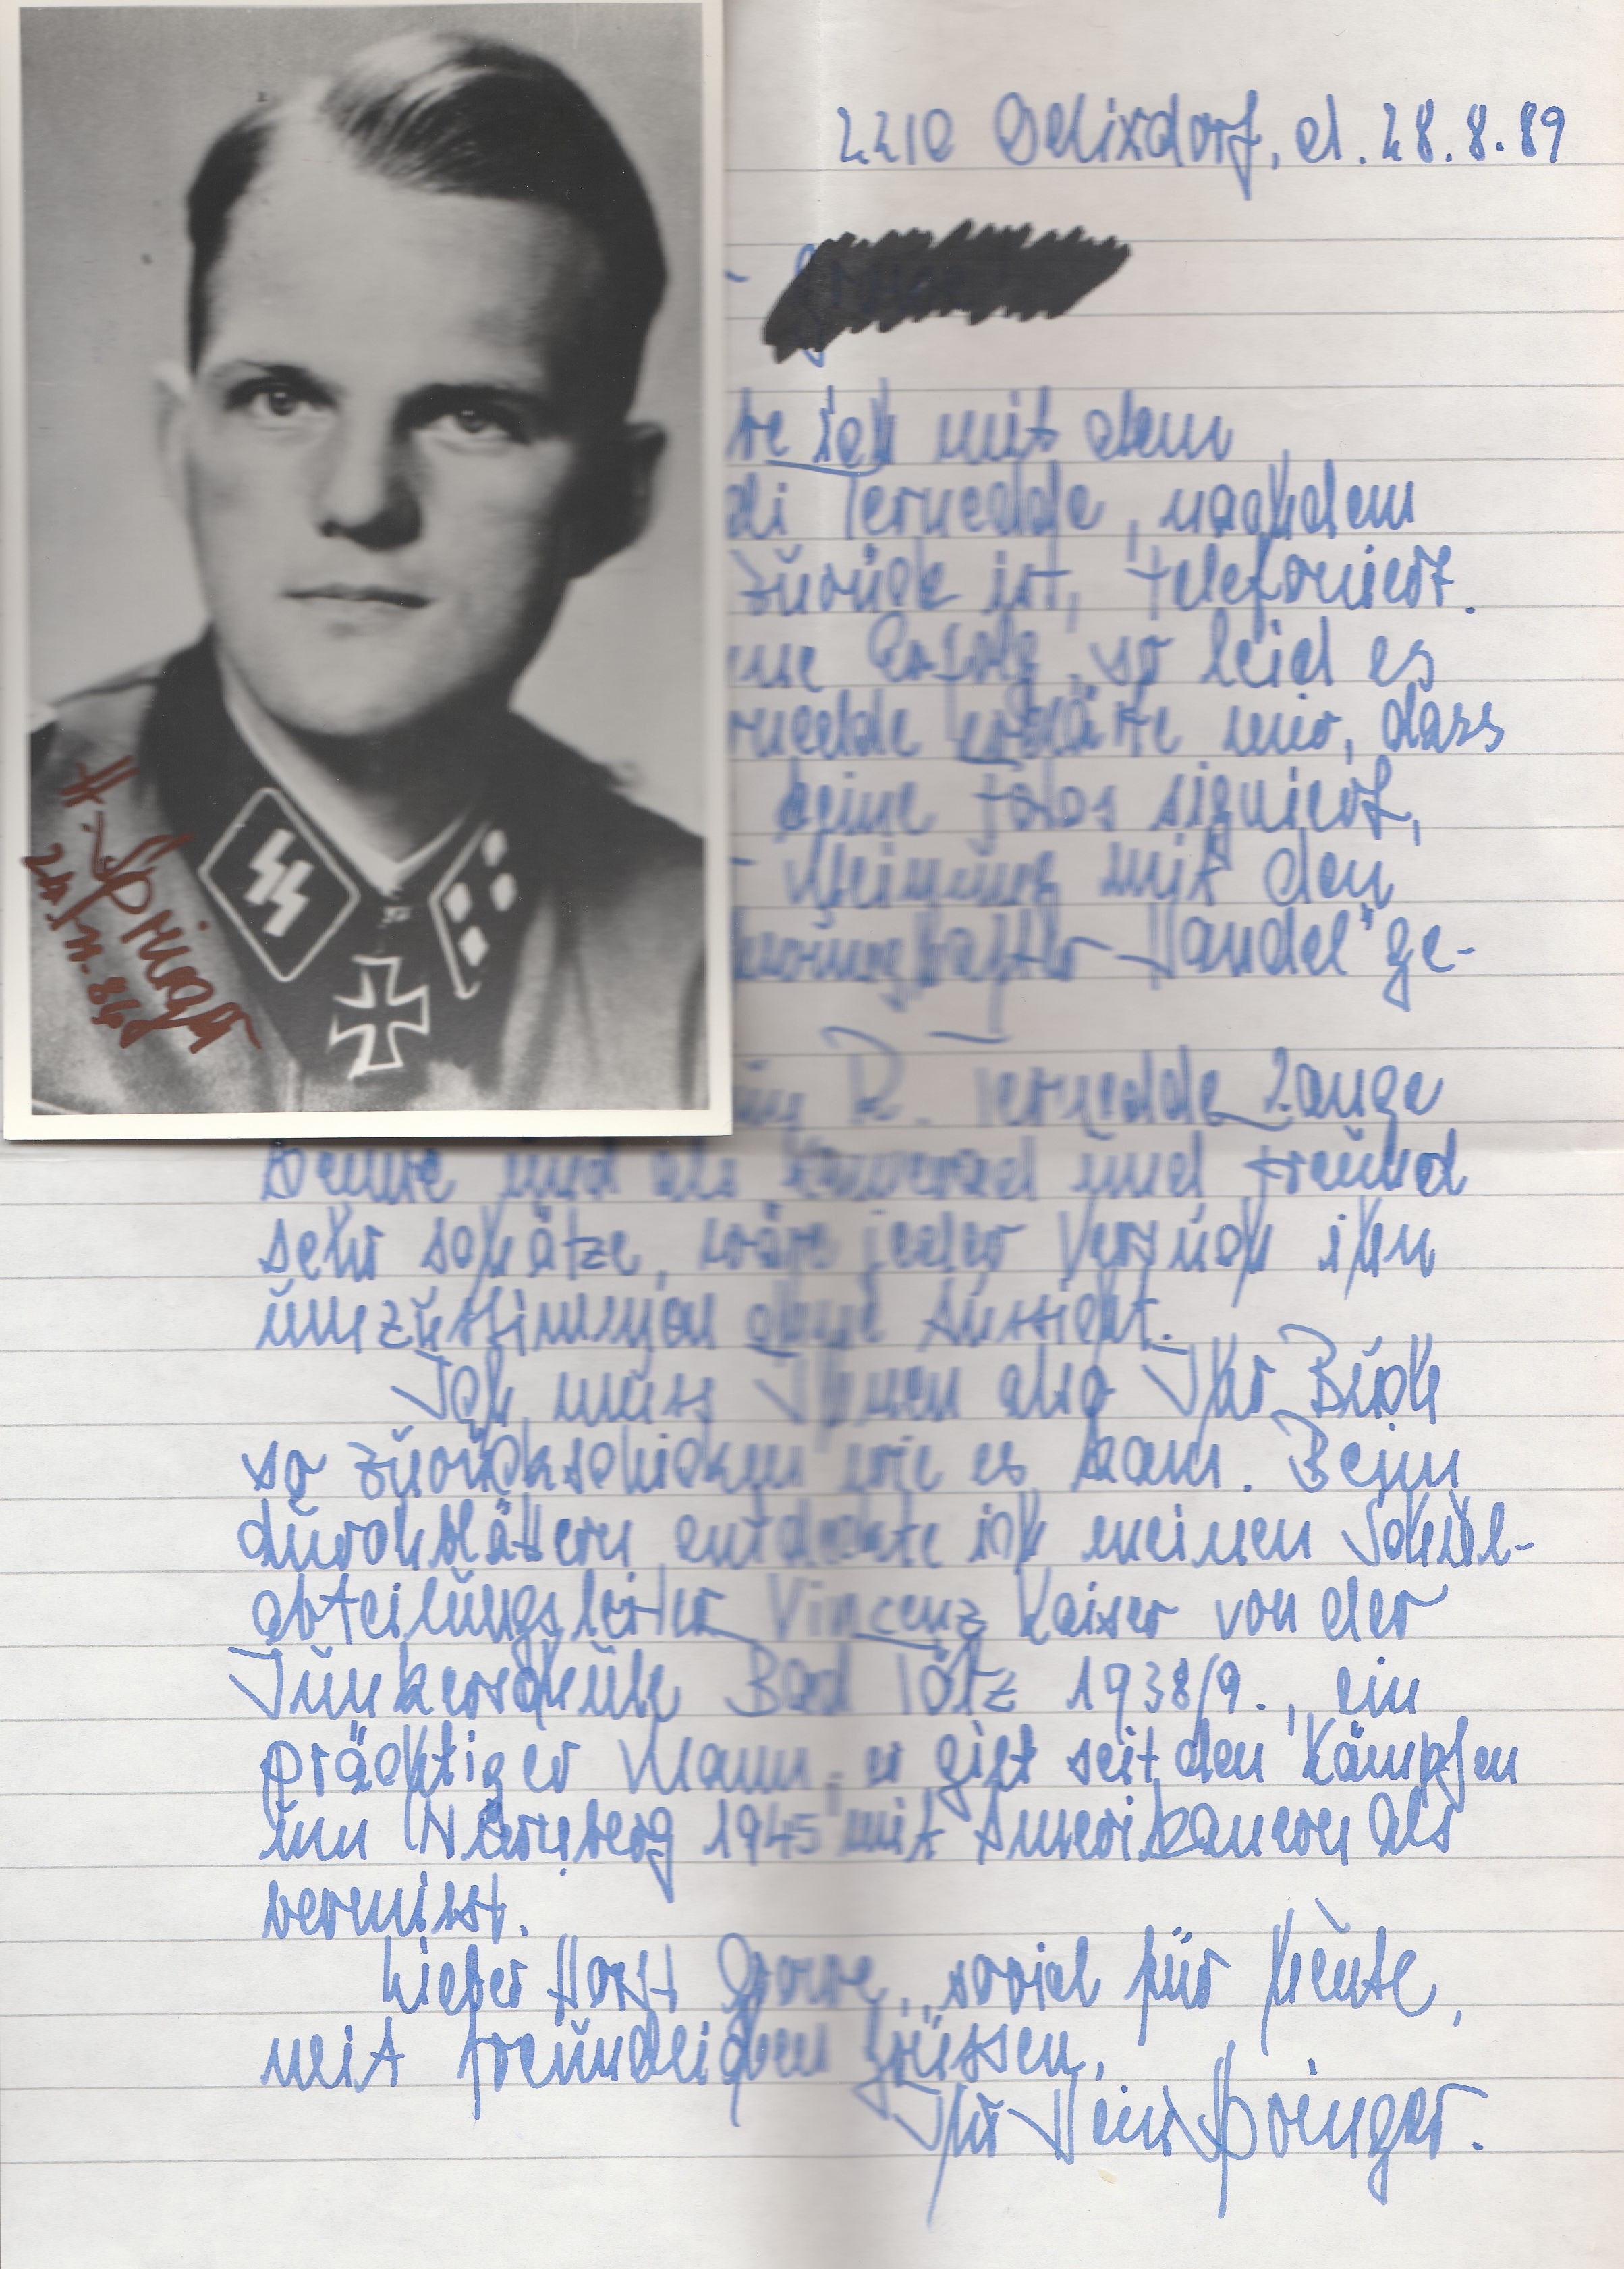 H. Springer
24.11.86
2210 Oelixdorf, d. 28.8.89
ich mit dem
Ternedde, nachdem
zurück ist, telefoniert.
Erfolg, so leid es
erklärte mir, dass
keine Fotos signiert,
mit den
Handel" ge-
R. Ternedde lange
kenne und als Kamerad und Freund
sehr schätze, wäre jeder Versuch ihn
umzustimmen ohne Aussicht.
Ich muss Ihnen also Ihr Buch
so zurückschicken wie es kam. Beim
durchblättern entdeckte ich meinen Schul-
abteilungsleiter Vincenz Kaiser von der
Junkerschule Bad Tölz 1938/9., ein
prächtiger Mann, er gilt seit den Kämpfen
um Nürnberg 1945 mit Amerikanern als
vermisst.
Lieber Horst soviel für heute,
mit freundlichen Grüssen,
Ihr Hein Springer.